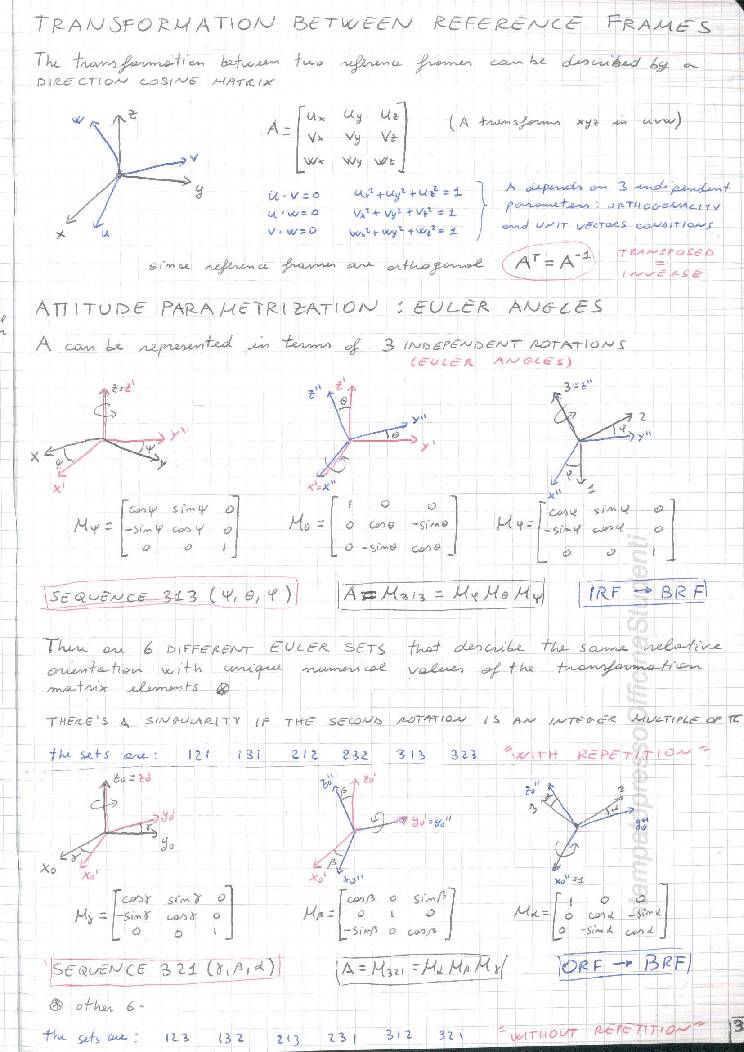 TRANSFORMATION BETWEEN REFERENCE FRAMES
The transformation between two reference frames can be described by a
DIRECTION COSINE MATRIX
w z v y x u
A = [ux uy uz
vx vy vz
wx wy wz]
(A transforms xyz in uvw)
u · v = 0 ux² + uy² + uz² = 1
u · w = 0 vx² + vy² + vz² = 1
v · w = 0 wx² + wy² + wz² = 1
A depends on 3 indipendent
parameters: ORTHOGONALITY
and UNIT VECTORS CONDITIONS
since reference frames are orthogonal Aᵀ = A⁻¹ TRANSPOSED
=
INVERSE
ATTITUDE PARAMETRIZATION : EULER ANGLES
A can be represented in terms of 3 INDEPENDENT ROTATIONS
(EULER ANGLES)
z=z' y' y x x' ψ ψ
z'' z' θ y'' θ y' x'=x''
3=z'' 2 φ y'' x'' φ 1
Mψ = [cosψ sinψ 0
-sinψ cosψ 0
0 0 1]
Mθ = [1 0 0
0 cosθ -sinθ
0 -sinθ cosθ]
Mφ = [cosφ sinφ 0
-sinφ cosφ 0
0 0 1]
SEQUENCE 313 (ψ, θ, φ) A = M313 = Mφ Mθ Mψ IRF → BRF
There are 6 DIFFERENT EULER SETS that describe the same relative
orientation with unique numerical values of the transformation
matrix elements ⊛
THERE'S A SINGULARITY IF THE SECOND ROTATION IS AN INTEGER MULTIPLE OF π
the sets are: 121 131 212 232 313 323 "WITH REPETITION"
z0 = z0' y0' γ y0 x0 γ x0'
z0'' β z0' y0'=y0'' β x0' x0''
z0'' 2 y0'' x0''=1
Mγ = [cosγ sinγ 0
-sinγ cosγ 0
0 0 1]
Mβ = [cosβ 0 sinβ
0 1 0
-sinβ 0 cosβ]
Mα = [1 0 0
0 cosα -sinα
0 -sinα cosα]
SEQUENCE 321 (γ, β, α) A = M321 = Mα Mβ Mγ ORF → BRF
⊛ other 6 -
the sets are: 123 132 213 231 312 321 "WITHOUT REPETITION"
3
Stampato presso Officina Studenti